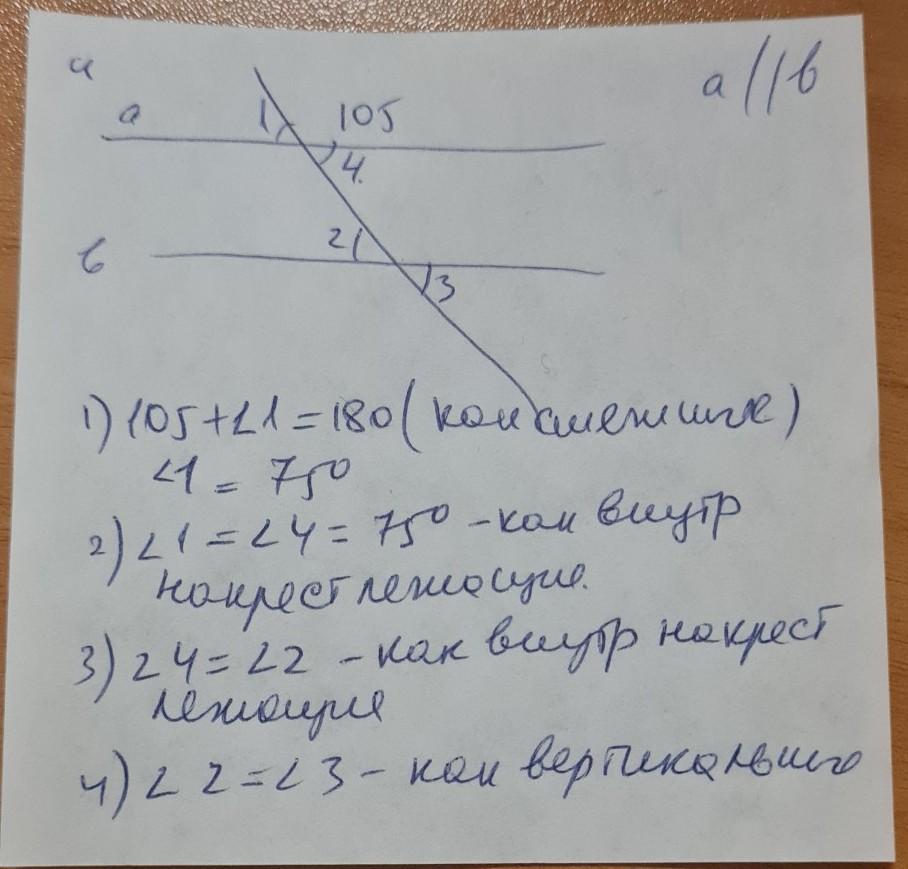 4
a // b
a
1
105
4.
в
2
3
1) 105 + ∠1 = 180 (как смежные)
∠1 = 75⁰
2) ∠1 = ∠4 = 75⁰ - как внутр
накрест лежащие.
3) ∠4 = ∠2 - как внутр накрест
лежащие
4) ∠2 = ∠3 - как вертикально